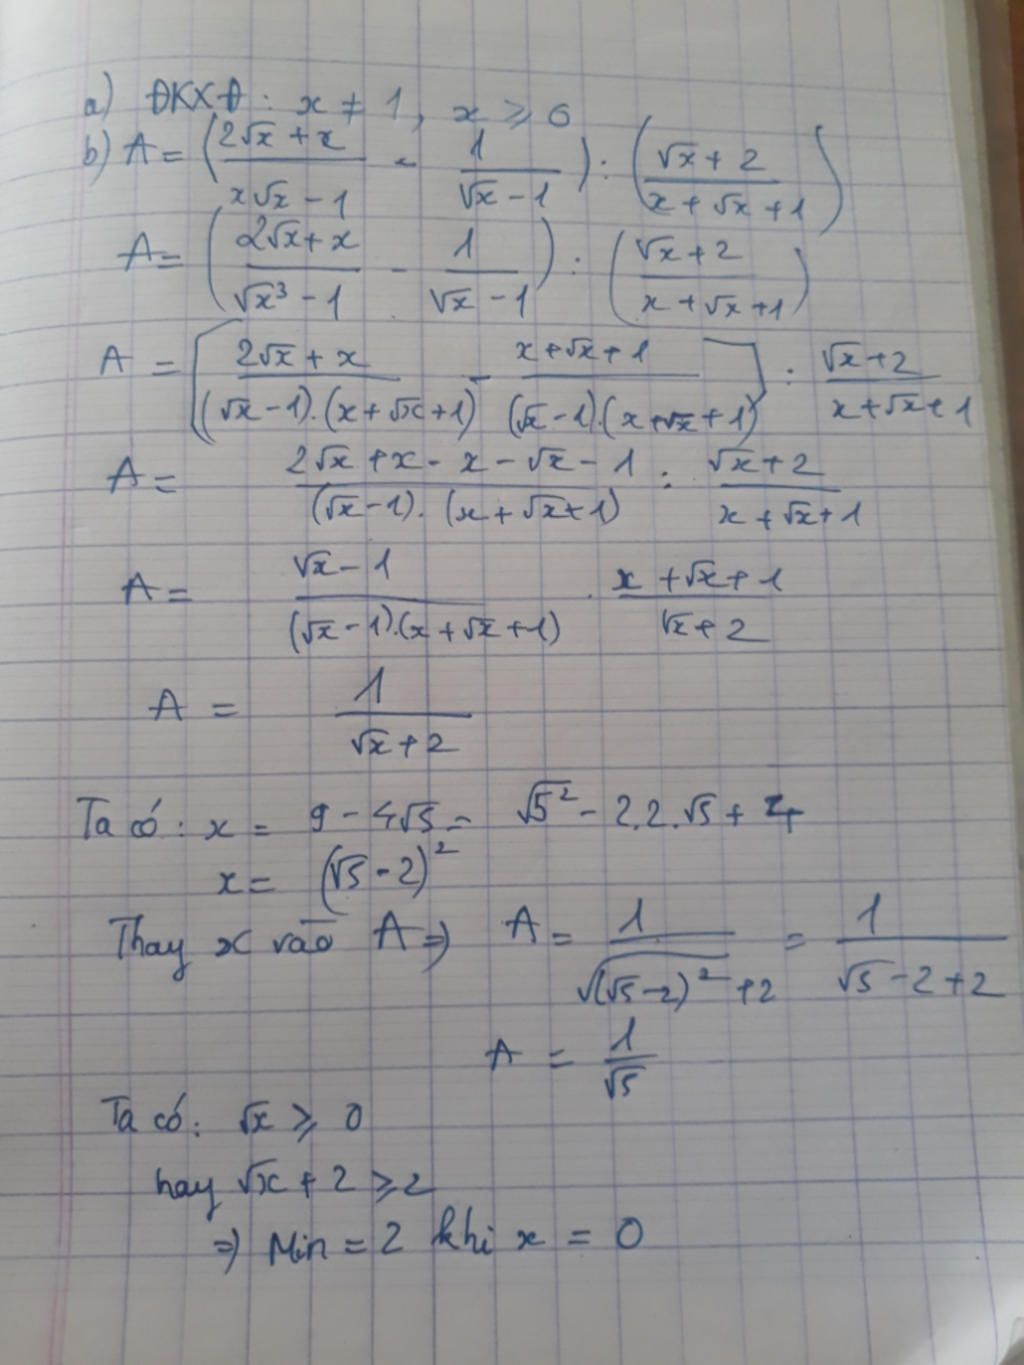 a) ĐKXĐ : x ≠ 1, x ≥ 0
b) A = ( (2√x + x)/(x√x - 1) - 1/(√x - 1) ) : ( (√x + 2)/(x + √x + 1) )
A = ( (2√x + x)/(√x³ - 1) - 1/(√x - 1) ) : ( (√x + 2)/(x + √x + 1) )
A = [ (2√x + x)/((√x - 1).(x + √x + 1)) - (x + √x + 1)/((√x - 1).(x + √x + 1)) ] : (√x + 2)/(x + √x + 1)
A = (2√x + x - x - √x - 1)/((√x - 1).(x + √x + 1)) : (√x + 2)/(x + √x + 1)
A = (√x - 1)/((√x - 1).(x + √x + 1)) . (x + √x + 1)/(√x + 2)
A = 1/(√x + 2)
Ta có : x = 9 - 4√5 = √5² - 2.2.√5 + 4
x = (√5 - 2)²
Thay x vào A ⇒ A = 1/(√(√5 - 2)² + 2) = 1/(√5 - 2 + 2)
A = 1/√5
Ta có : √x ≥ 0
hay √x + 2 ≥ 2
⇒ Min = 2 khi x = 0